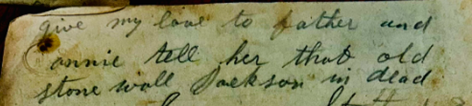 give my love to father and
Connie tell her that old
stone wall Jackson is dead